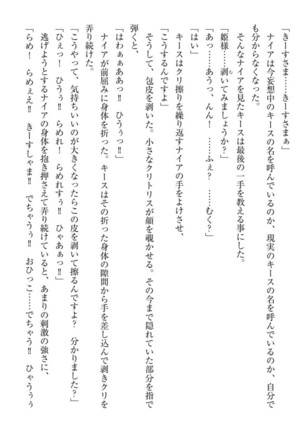 「きーすさま……きーすさまぁ」
ナイアは今妄想中のキースの名を呼んでいるのか、現実のキースの名を呼んでいるのか、自分で
も分からなくなった。
そんなナイアを見たキースは最後の一手を教える事にした。
「姫様……剥いてみましょうか?」
「あっ……あうっ、んん! ……ふぇ? ……むく?」
「はい」
キースはクリ擦りを繰り返すナイアの手をよけさせ、
「こうするんですよ」
そうして、包皮を剥いた。小さなクリトリスが顔を覗かせる。その今まで隠れていた部分を指で
弾くと、
「はわぁぁああっ!! ひうぅっ!!」
ナイアが前屈みに身体を折った。キースはその折った身体の隙間から手を差し込んで剥きクリを
弄り続けた。
「こうやって、気持ちいいのが大きくなったらこの皮を剥いて擦るんですよ? 分かりました?」
「ひぇっ! ひうぅ!! らめれ! らめれすぅ!! ひゃあぁっ!!」
逃げようとするナイアの身体を抱き押さえて弄り続けていると、あまりの刺激の強さに、
「らめ! らめぇえ!! きーすしゃま!! でちゃうぅ!! おひっこ……でちゃう!! ひゃうぅぅ